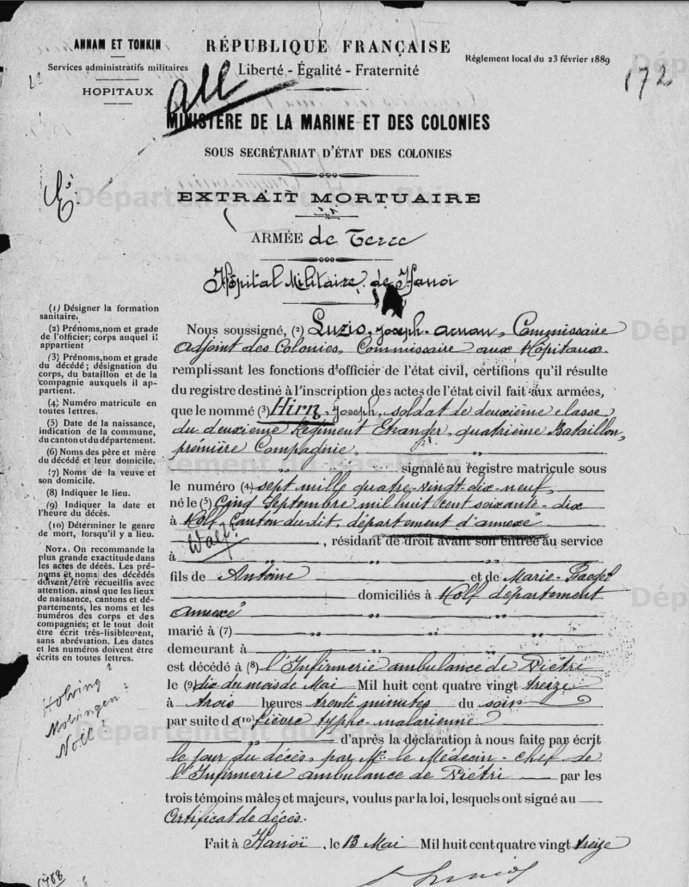 ANNAM ET TONKIN
Services administratifs militaires
HOPITAUX
RÉPUBLIQUE FRANÇAISE
Liberté - Égalité - Fraternité
Règlement local du 23 février 1889
172
all
MINISTÈRE DE LA MARINE ET DES COLONIES
SOUS SECRÉTARIAT D'ÉTAT DES COLONIES
EXTRAIT MORTUAIRE
ARMÉE de Terre
Hôpital Militaire de Hanoï
(1) Désigner la formation
sanitaire.
(2) Prénoms, nom et grade
de l'officier; corps auquel il
appartient
(3) Prénoms, nom et grade
du décédé; désignation du
corps, du bataillon et de la
compagnie auxquels il ap-
partient.
(4) Numéro matricule en
toutes lettres.
(5) Date de la naissance,
indication de la commune,
du canton et du département.
(6) Noms des père et mère
du décédé et leur domicile.
(7) Noms de la veuve et
son domicile.
(8) Indiquer le lieu.
(9) Indiquer la date et
l'heure du décès.
(10) Déterminer le genre
de mort, lorsqu'il y a lieu.
NOTA. On recommande la
plus grande exactitude dans
les actes de décès. Les pré-
noms et noms des décédés
doivent être recueillis avec
attention, ainsi que les lieux
de naissance, cantons et dé-
partements, les noms et les
numéros des corps et des
compagnies; et le tout doit
être écrit très-lisiblement,
sans abréviation. Les dates
et les numéros doivent être
écrits en toutes lettres.
Nous soussigné, (2) Luzio, Joseph, Commissaire
adjoint des Colonies, Commissaire aux Hôpitaux
remplissant les fonctions d'officier de l'état civil, certifions qu'il résulte
du registre destiné à l'inscription des actes de l'état civil fait aux armées,
que le nommé (3) Hirn, Joseph, soldat de deuxième classe
du deuxième Régiment Etranger, quatrième Bataillon,
première Compagnie.
signalé au registre matricule sous
le numéro (4) sept mille quatre-vingt-dix-neuf,
né le (5) Cinq Septembre mil huit cent soixante-dix
à Holf, Canton dudit, département d'annexé
Wolf
, résidant de droit avant son entrée au service
à
fils de Antoine et de Marie
domiciliés à Holf département
annexé
marié à (7)
demeurant à
est décédé à (8) l'Infirmerie ambulance de Viétri
le (9) dix du mois de Mai Mil huit cent quatre vingt treize
à trois heures trente minutes du soir
par suite d (10) fièvre typho-malarienne
d'après la déclaration à nous faite par écrit
le jour du décès, par Mr le Médecin-Chef de
l'Infirmerie ambulance de Viétri par les
trois témoins mâles et majeurs, voulus par la loi, lesquels ont signé au
Certificat de décès.
Fait à Hanoï, le 13 Mai Mil huit cent quatre vingt treize
Holving?
Molvingen?
Noll?
Département du Bas-Rhin